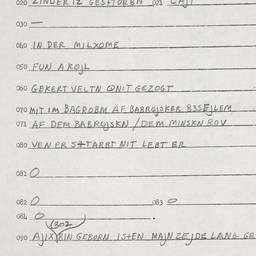 020 ZINDER IZ GESHTORBN 021 CAJT
030 —
040 IN DER MILXOME
050 FUN A KOJL
060 GEKERT VELTN QNIT GEZOGT
070 MIT IM BAGROBM AF BABROJSKER B3SEJLEM
071 AF DEM BABROJSKN / DEM MINSKN ROV
080 VEN ER STARBT NIT LEBT ER
081 O
082 O 083 O
084 O
(302)
090 AJIX BIN GEBORN ISTEN MAJN ZEJDE LANG GE